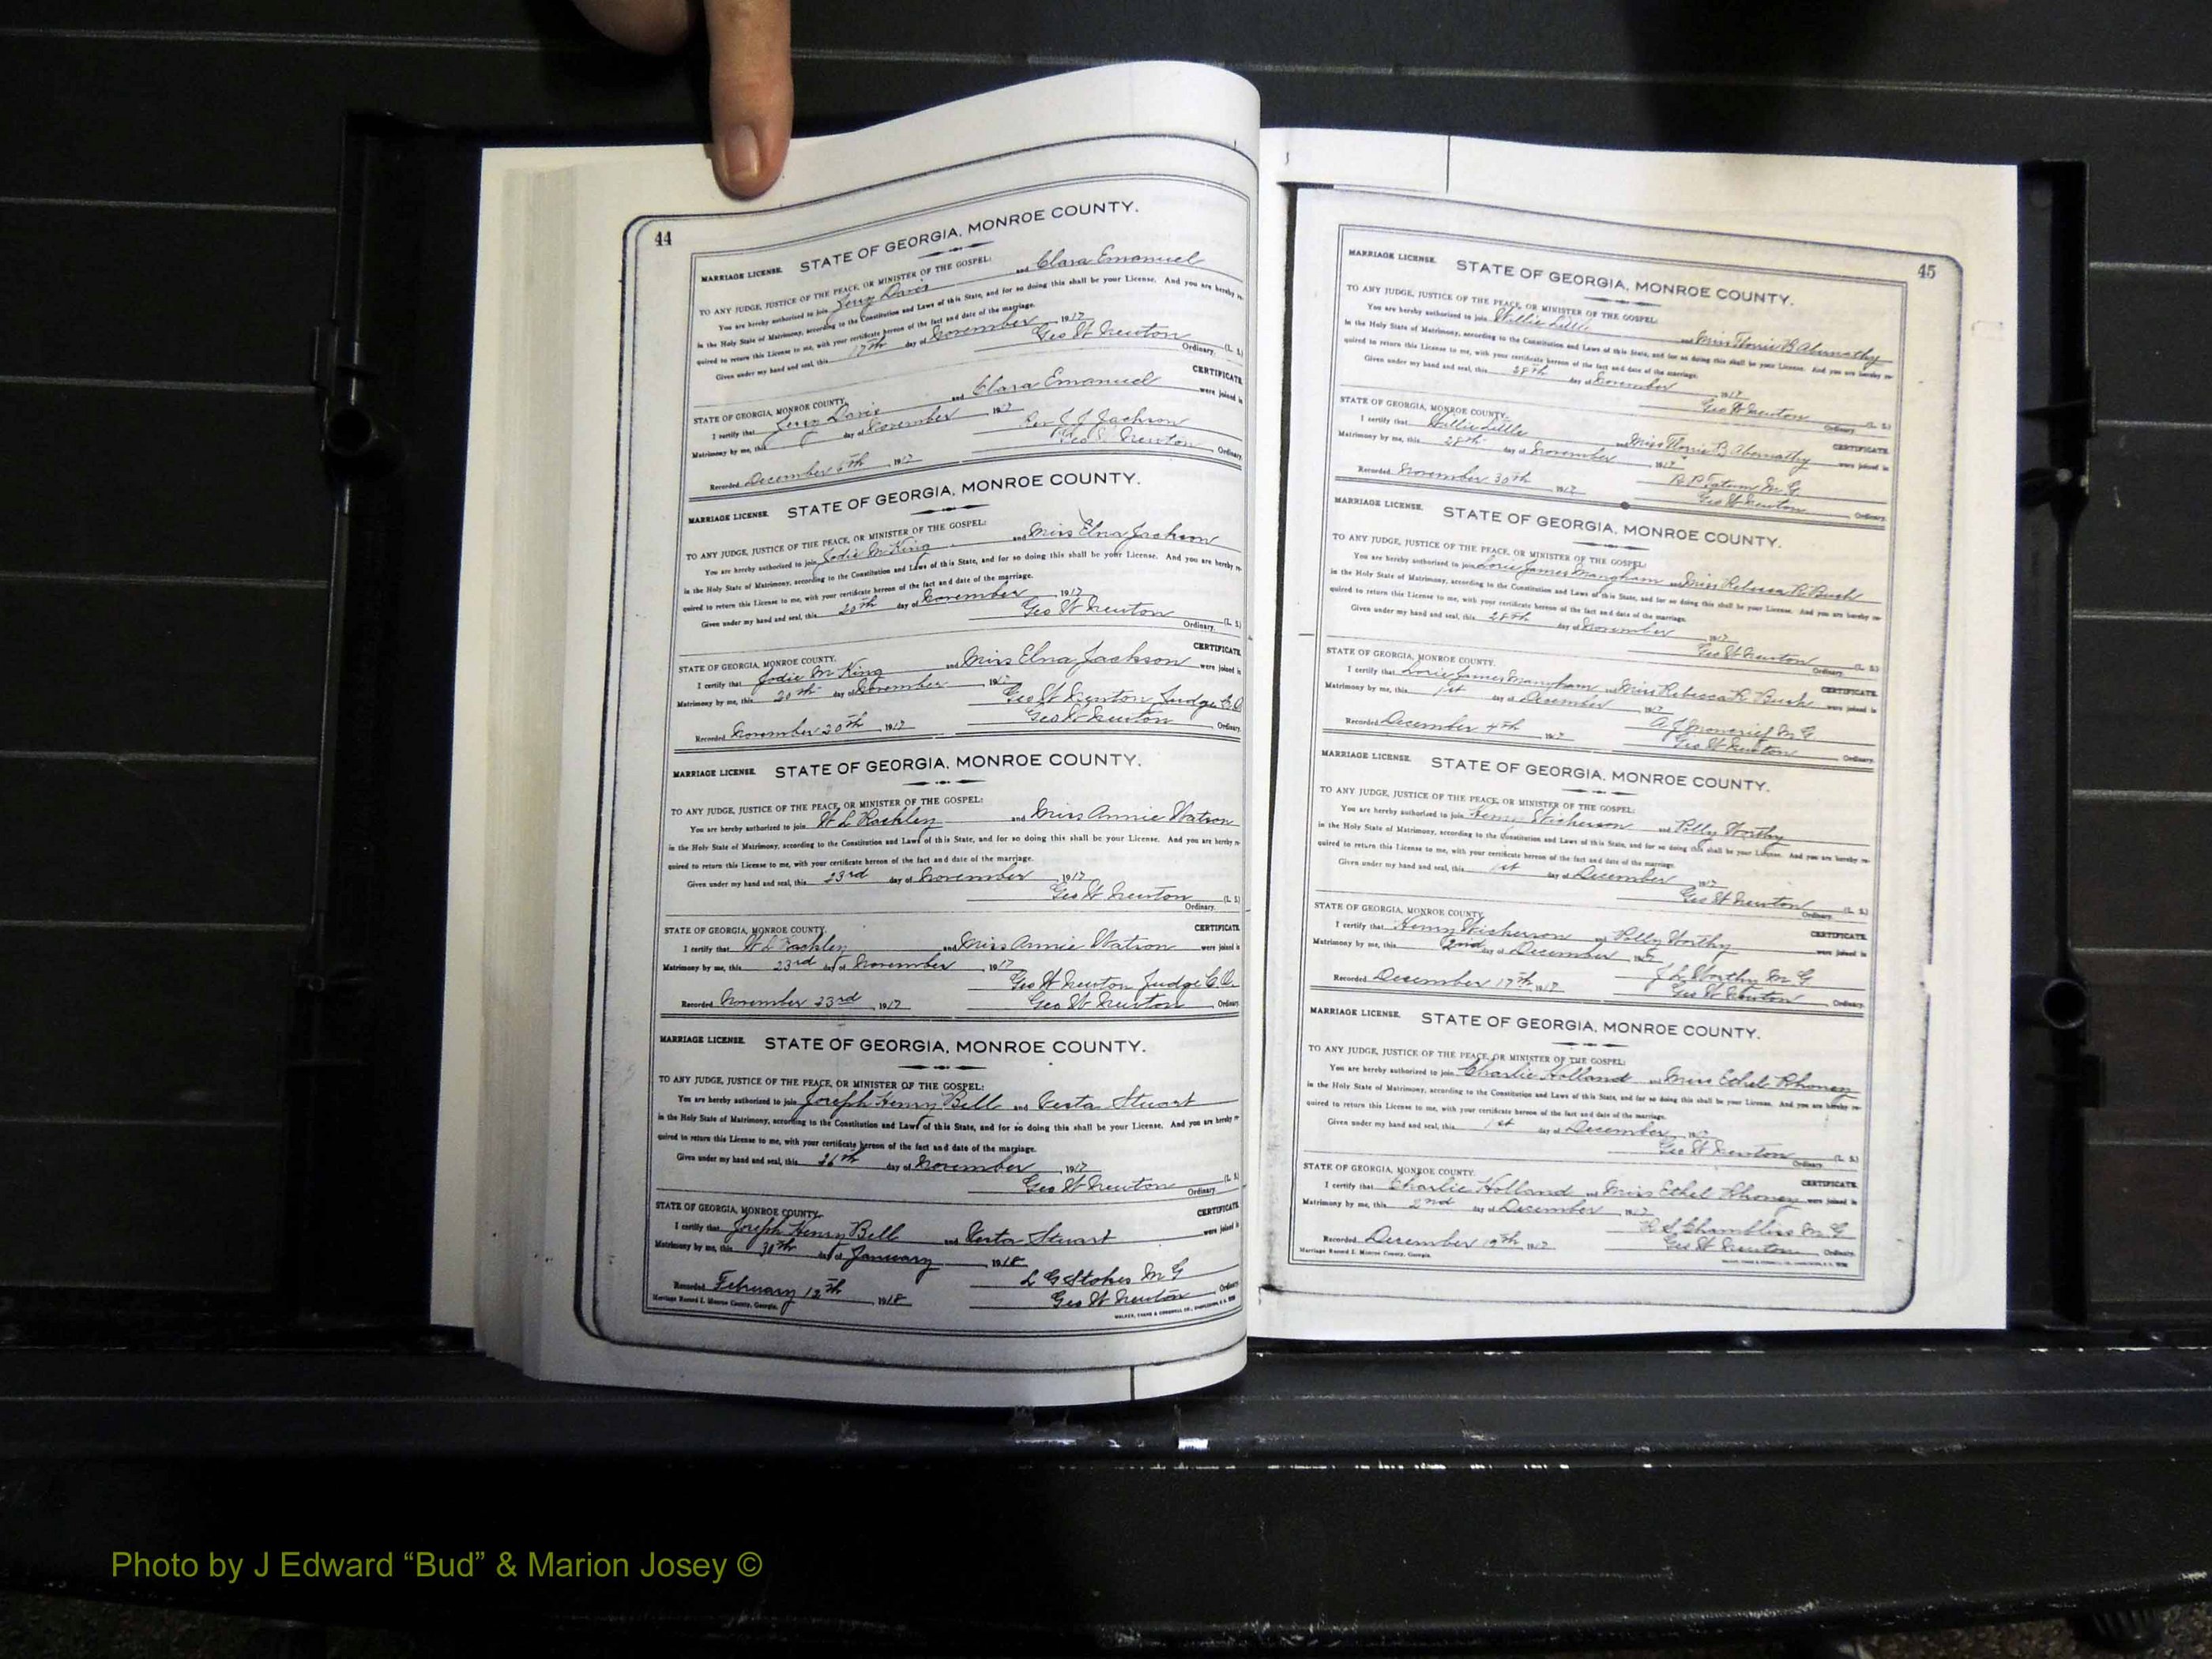 44
MARRIAGE LICENSE. STATE OF GEORGIA, MONROE COUNTY.
TO ANY JUDGE, JUSTICE OF THE PEACE, OR MINISTER OF THE GOSPEL:
You are hereby authorized to join Jerry Davis and Clara Emanuel
in the Holy State of Matrimony, according to the Constitution and Laws of this State, and for so doing this shall be your License. And you are hereby re-
quired to return this License to me, with your certificate hereon of the fact and date of the marriage.
Given under my hand and seal, this 17th day of November 1917
Geo W Newton (L. S.)
Ordinary.
STATE OF GEORGIA, MONROE COUNTY. CERTIFICATE.
I certify that Jerry Davis and Clara Emanuel were joined in
Matrimony by me, this day of November 1917
Rev J J Jackson
Recorded December 6th 1917 Geo W Newton Ordinary.
MARRIAGE LICENSE. STATE OF GEORGIA, MONROE COUNTY.
TO ANY JUDGE, JUSTICE OF THE PEACE, OR MINISTER OF THE GOSPEL:
You are hereby authorized to join Jodie M King and Miss Elna Jackson
in the Holy State of Matrimony, according to the Constitution and Laws of this State, and for so doing this shall be your License. And you are hereby re-
quired to return this License to me, with your certificate hereon of the fact and date of the marriage.
Given under my hand and seal, this 20th day of November 1917
Geo W Newton (L. S.)
Ordinary.
STATE OF GEORGIA, MONROE COUNTY. CERTIFICATE.
I certify that Jodie M King and Miss Elna Jackson were joined in
Matrimony by me, this 20th day of November 1917
Geo W Newton Judge C.O.
Recorded November 20th 1917 Geo W Newton Ordinary.
MARRIAGE LICENSE. STATE OF GEORGIA, MONROE COUNTY.
TO ANY JUDGE, JUSTICE OF THE PEACE, OR MINISTER OF THE GOSPEL:
You are hereby authorized to join W L Rachley and Miss Annie Watson
in the Holy State of Matrimony, according to the Constitution and Laws of this State, and for so doing this shall be your License. And you are hereby re-
quired to return this License to me, with your certificate hereon of the fact and date of the marriage.
Given under my hand and seal, this 23rd day of November 1917
Geo W Newton (L. S.)
Ordinary.
STATE OF GEORGIA, MONROE COUNTY. CERTIFICATE.
I certify that W L Rachley and Miss Annie Watson were joined in
Matrimony by me, this 23rd day of November 1917
Geo W Newton Judge C.O.
Recorded November 23rd, 1917 Geo W Newton Ordinary.
MARRIAGE LICENSE. STATE OF GEORGIA, MONROE COUNTY.
TO ANY JUDGE, JUSTICE OF THE PEACE, OR MINISTER OF THE GOSPEL:
You are hereby authorized to join Joseph Henry Bell and Vesta Stuart
in the Holy State of Matrimony, according to the Constitution and Laws of this State, and for so doing this shall be your License. And you are hereby re-
quired to return this License to me, with your certificate hereon of the fact and date of the marriage.
Given under my hand and seal, this 26th day of November 1917
Geo W Newton (L. S.)
Ordinary.
STATE OF GEORGIA, MONROE COUNTY. CERTIFICATE.
I certify that Joseph Henry Bell and Vesta Stuart were joined in
Matrimony by me, this 30th day of January 1918
L G Stokes M G
Recorded February 12th 1918 Geo W Newton Ordinary.
Marriage Record I. Monroe County, Georgia.
45
MARRIAGE LICENSE. STATE OF GEORGIA, MONROE COUNTY.
TO ANY JUDGE, JUSTICE OF THE PEACE, OR MINISTER OF THE GOSPEL:
You are hereby authorized to join Willie Little and Miss B Abernathy
in the Holy State of Matrimony, according to the Constitution and Laws of this State, and for so doing this shall be your License. And you are hereby re-
quired to return this License to me, with your certificate hereon of the fact and date of the marriage.
Given under my hand and seal, this 28th day of November 1917
Geo W Newton (L. S.)
Ordinary.
STATE OF GEORGIA, MONROE COUNTY. CERTIFICATE.
I certify that Willie Little and Miss B Abernathy were joined in
Matrimony by me, this 28th day of November 1917
R P Tatum M G
Recorded November 30th 1917 Geo W Newton Ordinary.
MARRIAGE LICENSE. STATE OF GEORGIA, MONROE COUNTY.
TO ANY JUDGE, JUSTICE OF THE PEACE, OR MINISTER OF THE GOSPEL:
You are hereby authorized to join Lorie James Mangham and Miss Rebecca R Bush
in the Holy State of Matrimony, according to the Constitution and Laws of this State, and for so doing this shall be your License. And you are hereby re-
quired to return this License to me, with your certificate hereon of the fact and date of the marriage.
Given under my hand and seal, this 28th day of November 1917
Geo W Newton (L. S.)
Ordinary.
STATE OF GEORGIA, MONROE COUNTY. CERTIFICATE.
I certify that Lorie James Mangham and Miss Rebecca R Bush were joined in
Matrimony by me, this 1st day of December 1917
A J Moncrief M G
Recorded December 4th 1917 Geo W Newton Ordinary.
MARRIAGE LICENSE. STATE OF GEORGIA, MONROE COUNTY.
TO ANY JUDGE, JUSTICE OF THE PEACE, OR MINISTER OF THE GOSPEL:
You are hereby authorized to join Henry Wickerson and Polly Worthy
in the Holy State of Matrimony, according to the Constitution and Laws of this State, and for so doing this shall be your License. And you are hereby re-
quired to return this License to me, with your certificate hereon of the fact and date of the marriage.
Given under my hand and seal, this 1st day of December 1917
Geo W Newton (L. S.)
Ordinary.
STATE OF GEORGIA, MONROE COUNTY. CERTIFICATE.
I certify that Henry Wickerson and Polly Worthy were joined in
Matrimony by me, this 2nd day of December 1917
J L Worthy M G
Recorded December 17th 1917 Geo W Newton Ordinary.
MARRIAGE LICENSE. STATE OF GEORGIA, MONROE COUNTY.
TO ANY JUDGE, JUSTICE OF THE PEACE, OR MINISTER OF THE GOSPEL:
You are hereby authorized to join Charlie Holland and Miss Ethel Rhoney
in the Holy State of Matrimony, according to the Constitution and Laws of this State, and for so doing this shall be your License. And you are hereby re-
quired to return this License to me, with your certificate hereon of the fact and date of the marriage.
Given under my hand and seal, this 1st day of December 1917
Geo W Newton (L. S.)
Ordinary.
STATE OF GEORGIA, MONROE COUNTY. CERTIFICATE.
I certify that Charlie Holland and Miss Ethel Rhoney were joined in
Matrimony by me, this 2nd day of December 1917
R S Chambliss M G
Recorded December 19th 1917 Geo W Newton Ordinary.
Marriage Record I. Monroe County, Georgia.
Photo by J Edward “Bud” & Marion Josey ©